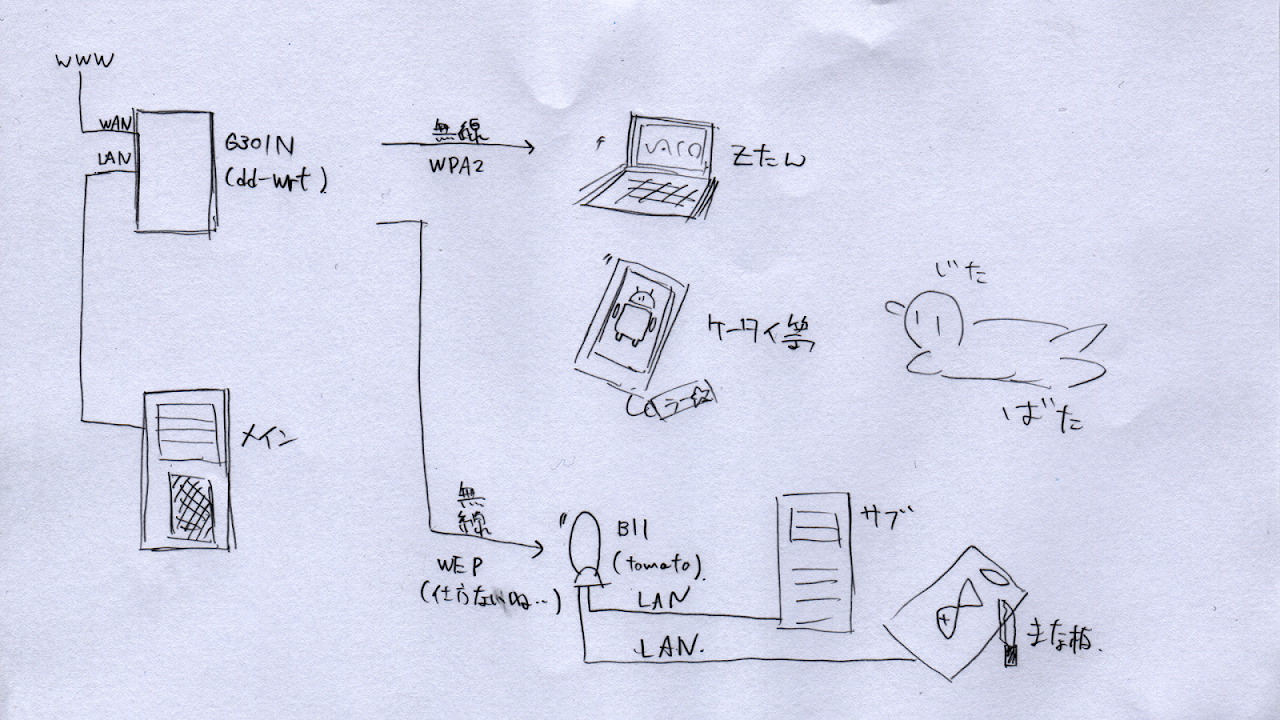 WWW
WAN
LAN
G301N
(dd-wrt)
無線
WPA2
VAIO
Zたん
ケータイ等
じた
ばた
メイン
無
線
WEP
(仕方ないね‥)
B11
(tomato)
LAN
サブ
LAN.
まな板.